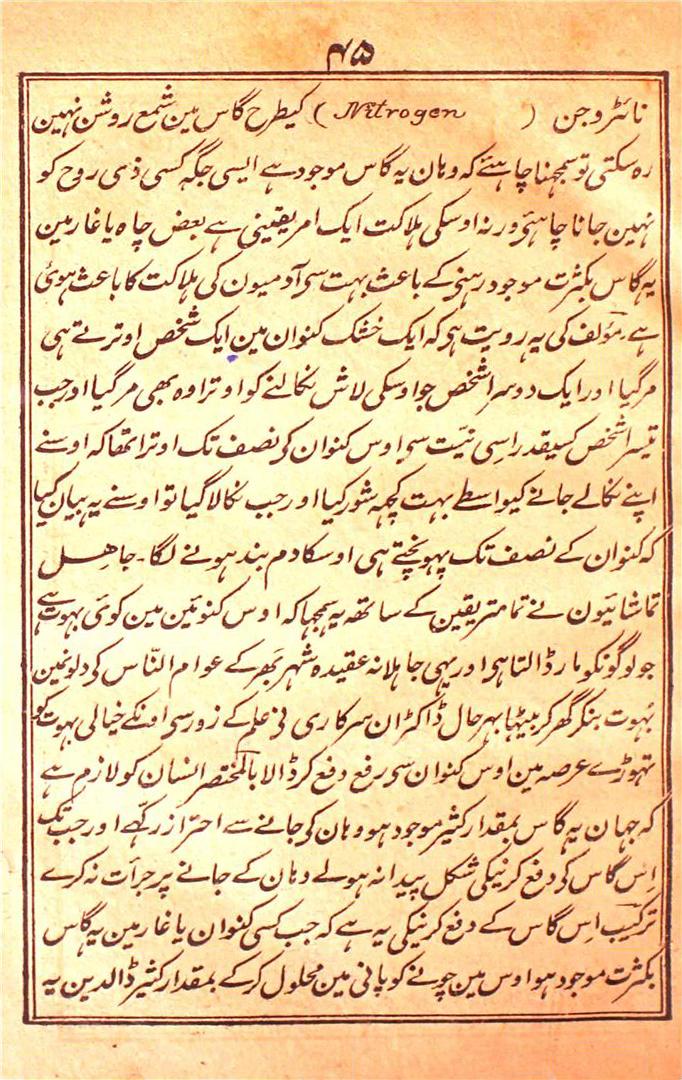 ۴۵
نائٹروجن ( Nitrogen ) کیطرح گاس مین شمع روشن نہین
رہ سکتی تو سمجہنا چاہئے کہ وہان یہ گاس موجود ہے ایسی جگہ کسی ذی روح کو
نہین جانا چاہئے ورنہ اوسکی ہلاکت ایک امر یقینی ہے بعض چاہ یا غار مین
یہ گاس بکثرت موجود رہنے کے باعث بہت سی آدمیون کی ہلاکت کا باعث ہوئ
ہے۔ مؤلف کی یہ رویت ہی کہ ایک خشک کنوان مین ایک شخص اوترتے ہی
مرگیا اور ایک دوسرا شخص جو اوسکی لاش نکالنے کو اوترا وہ بھی مرگیا اور جب
تیسرا شخص کسیقدر اسی نیّت سی اوس کنوان کی نصف تک اوترا تھا کہ اوسنے
اپنے نکالے جانے کیواسطے بہت کچہہ شور کیا اور جب نکالا گیا تو اوسنے یہ بیان کیا
کہ کنوان کے نصف تک پہونچتے ہی اوسکا دم بند ہونے لگا۔ جاہل
تماشائیون نے تمامتر یقین کے ساتھ یہ سمجہا کہ اوس کنوئین مین کوئ بہوت ہے
جو لوگونکو مار ڈالتا ہی اور یہی جاہلانہ عقیدہ شہر بھر کے عوام النّاس کی دلونمین
بہوت بنکر گھر کر بیٹھا بہر حال ڈاکٹران سرکاری نی علم کے زور سی اونکے خیالی بہوت کو
تہوڑے عرصہ مین اوس کنوان سی رفع دفع کر ڈالا بالمختصر انسان کو لازم ہے
کہ جہان یہ گاس بمقدار کثیر موجود ہو وہان کی جانے سے احتراز رکہے اور جب تک
اِس گاس کی دفع کرنیکی شکل پیدا نہ ہولے وہان کے جانے پر جرأت نہ کرے
ترکیب اِس گاس کے دفع کرنیکی یہ ہے کہ جب کسی کنوان یا غار مین یہ گاس
بکثرت موجود ہو اوس مین چونے کو پانی مین محلول کرکے بمقدار کثیر ڈالدین یہ